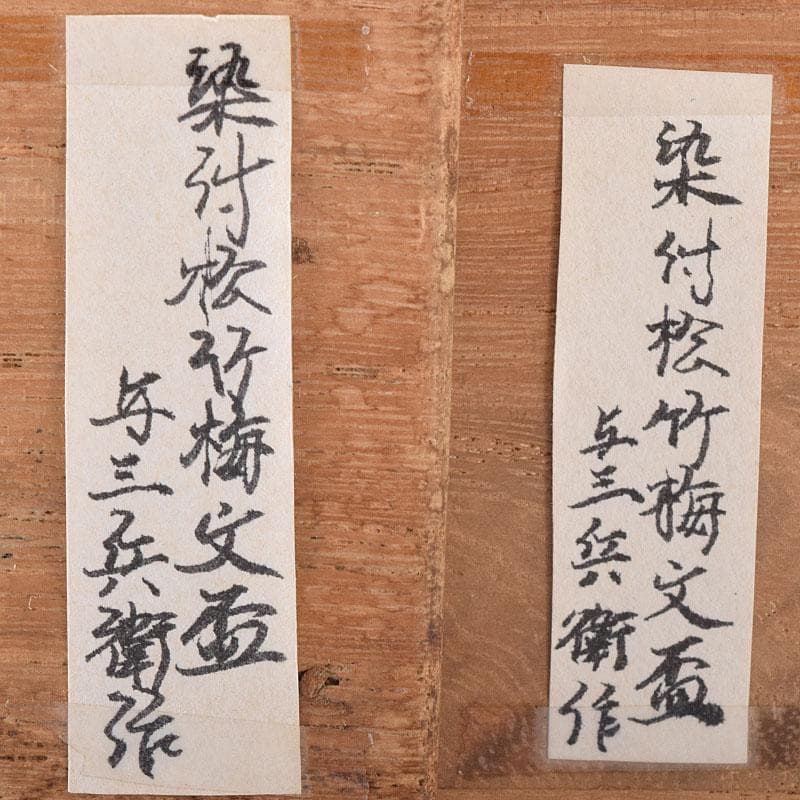 染付松竹梅文盃
与三兵衛作
染付松竹梅文盃
与三兵衛作